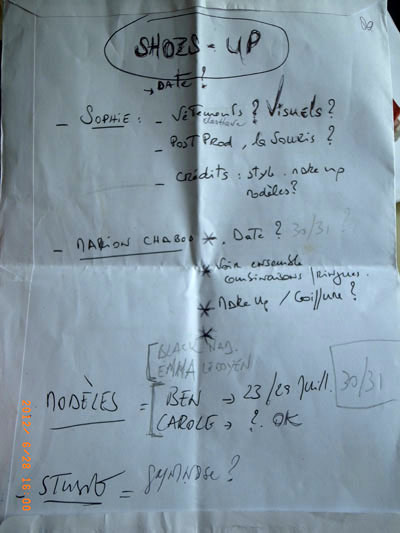 SHOES-UP
→ DATE ?
- SOPHIE : - Vêtements ? VISUELS ?
- POST PROD, la souris ?
- CRédits : style. make up
modèles ?
- MARION CHABOD * . Date ? 30/31 ?
* Voir ensemble
combinaisons /
* Make up / Coiffure ?
*
[BLACK
EMMA
MODÈLES = [BEN → 23/29 Juill. 30/31
CAROLE → ? OK
STUDIO = GYMNASE ?
2012/ 6/28 16:00